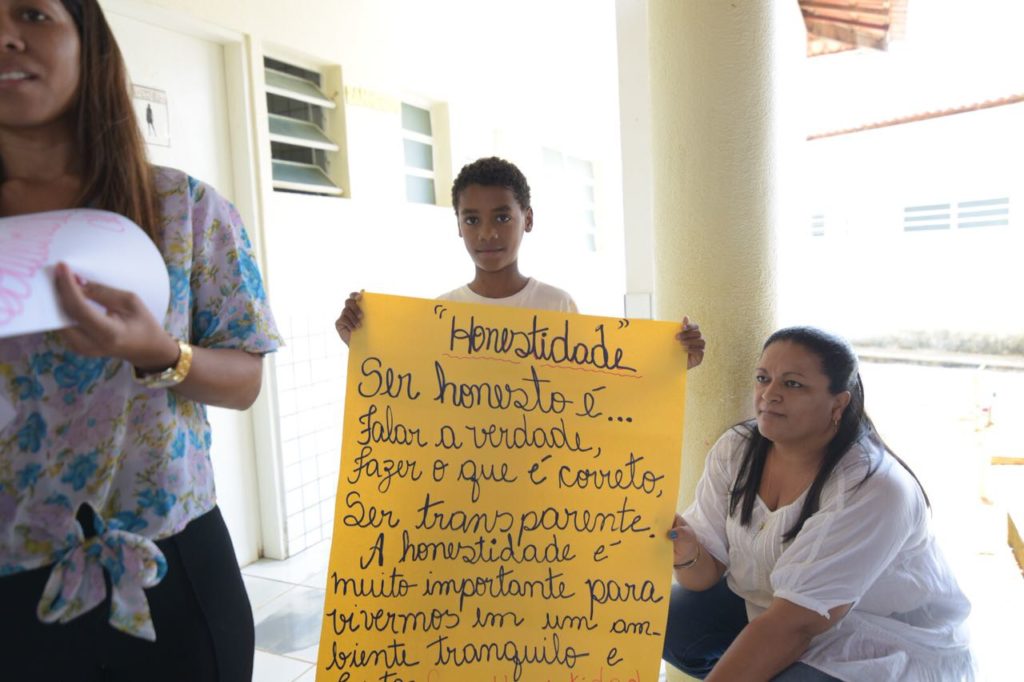 "Honestidade"
Ser honesto é...
Falar a verdade,
Fazer o que é correto,
Ser transparente.
A honestidade é
muito importante para
vivermos em um am-
biente tranquilo e